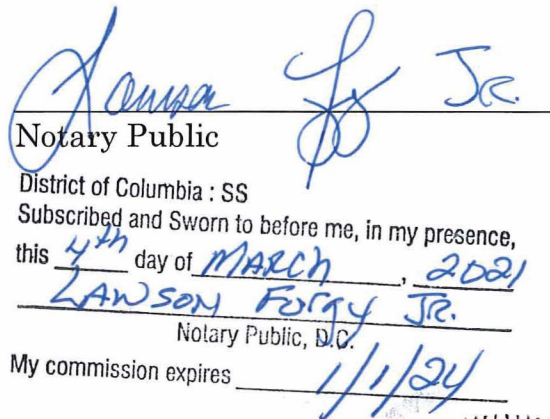 Lawson Jr.
Notary Public
District of Columbia : SS
Subscribed and Sworn to before me, in my presence,
this 4th day of MARCH, 2021
LAWSON FORGY JR.
Notary Public, D.C.
My commission expires 1/1/24